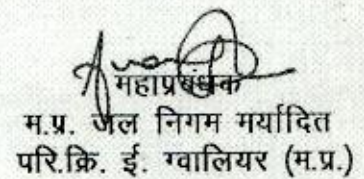 महाप्रबंधक
म.प्र. जल निगम मर्यादित
परि.क्रि. ई. ग्वालियर (म.प्र.)